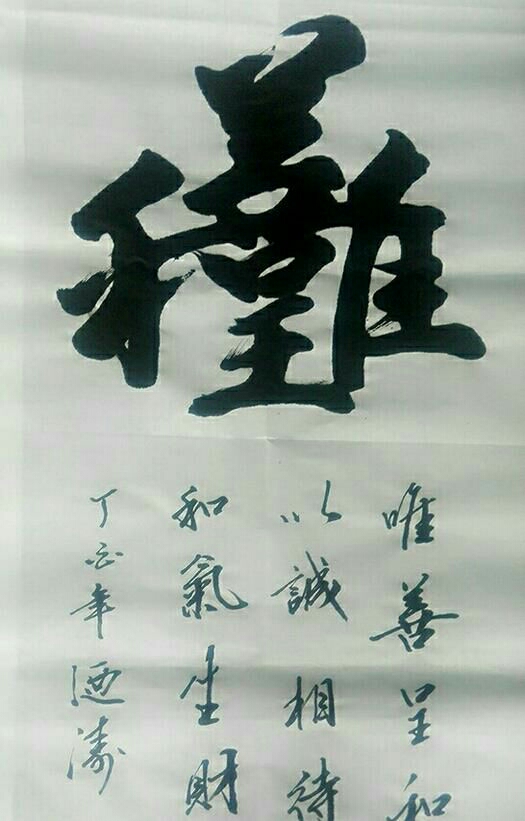 唯善呈和
以誠相待
和氣生財
丁酉年迺濤